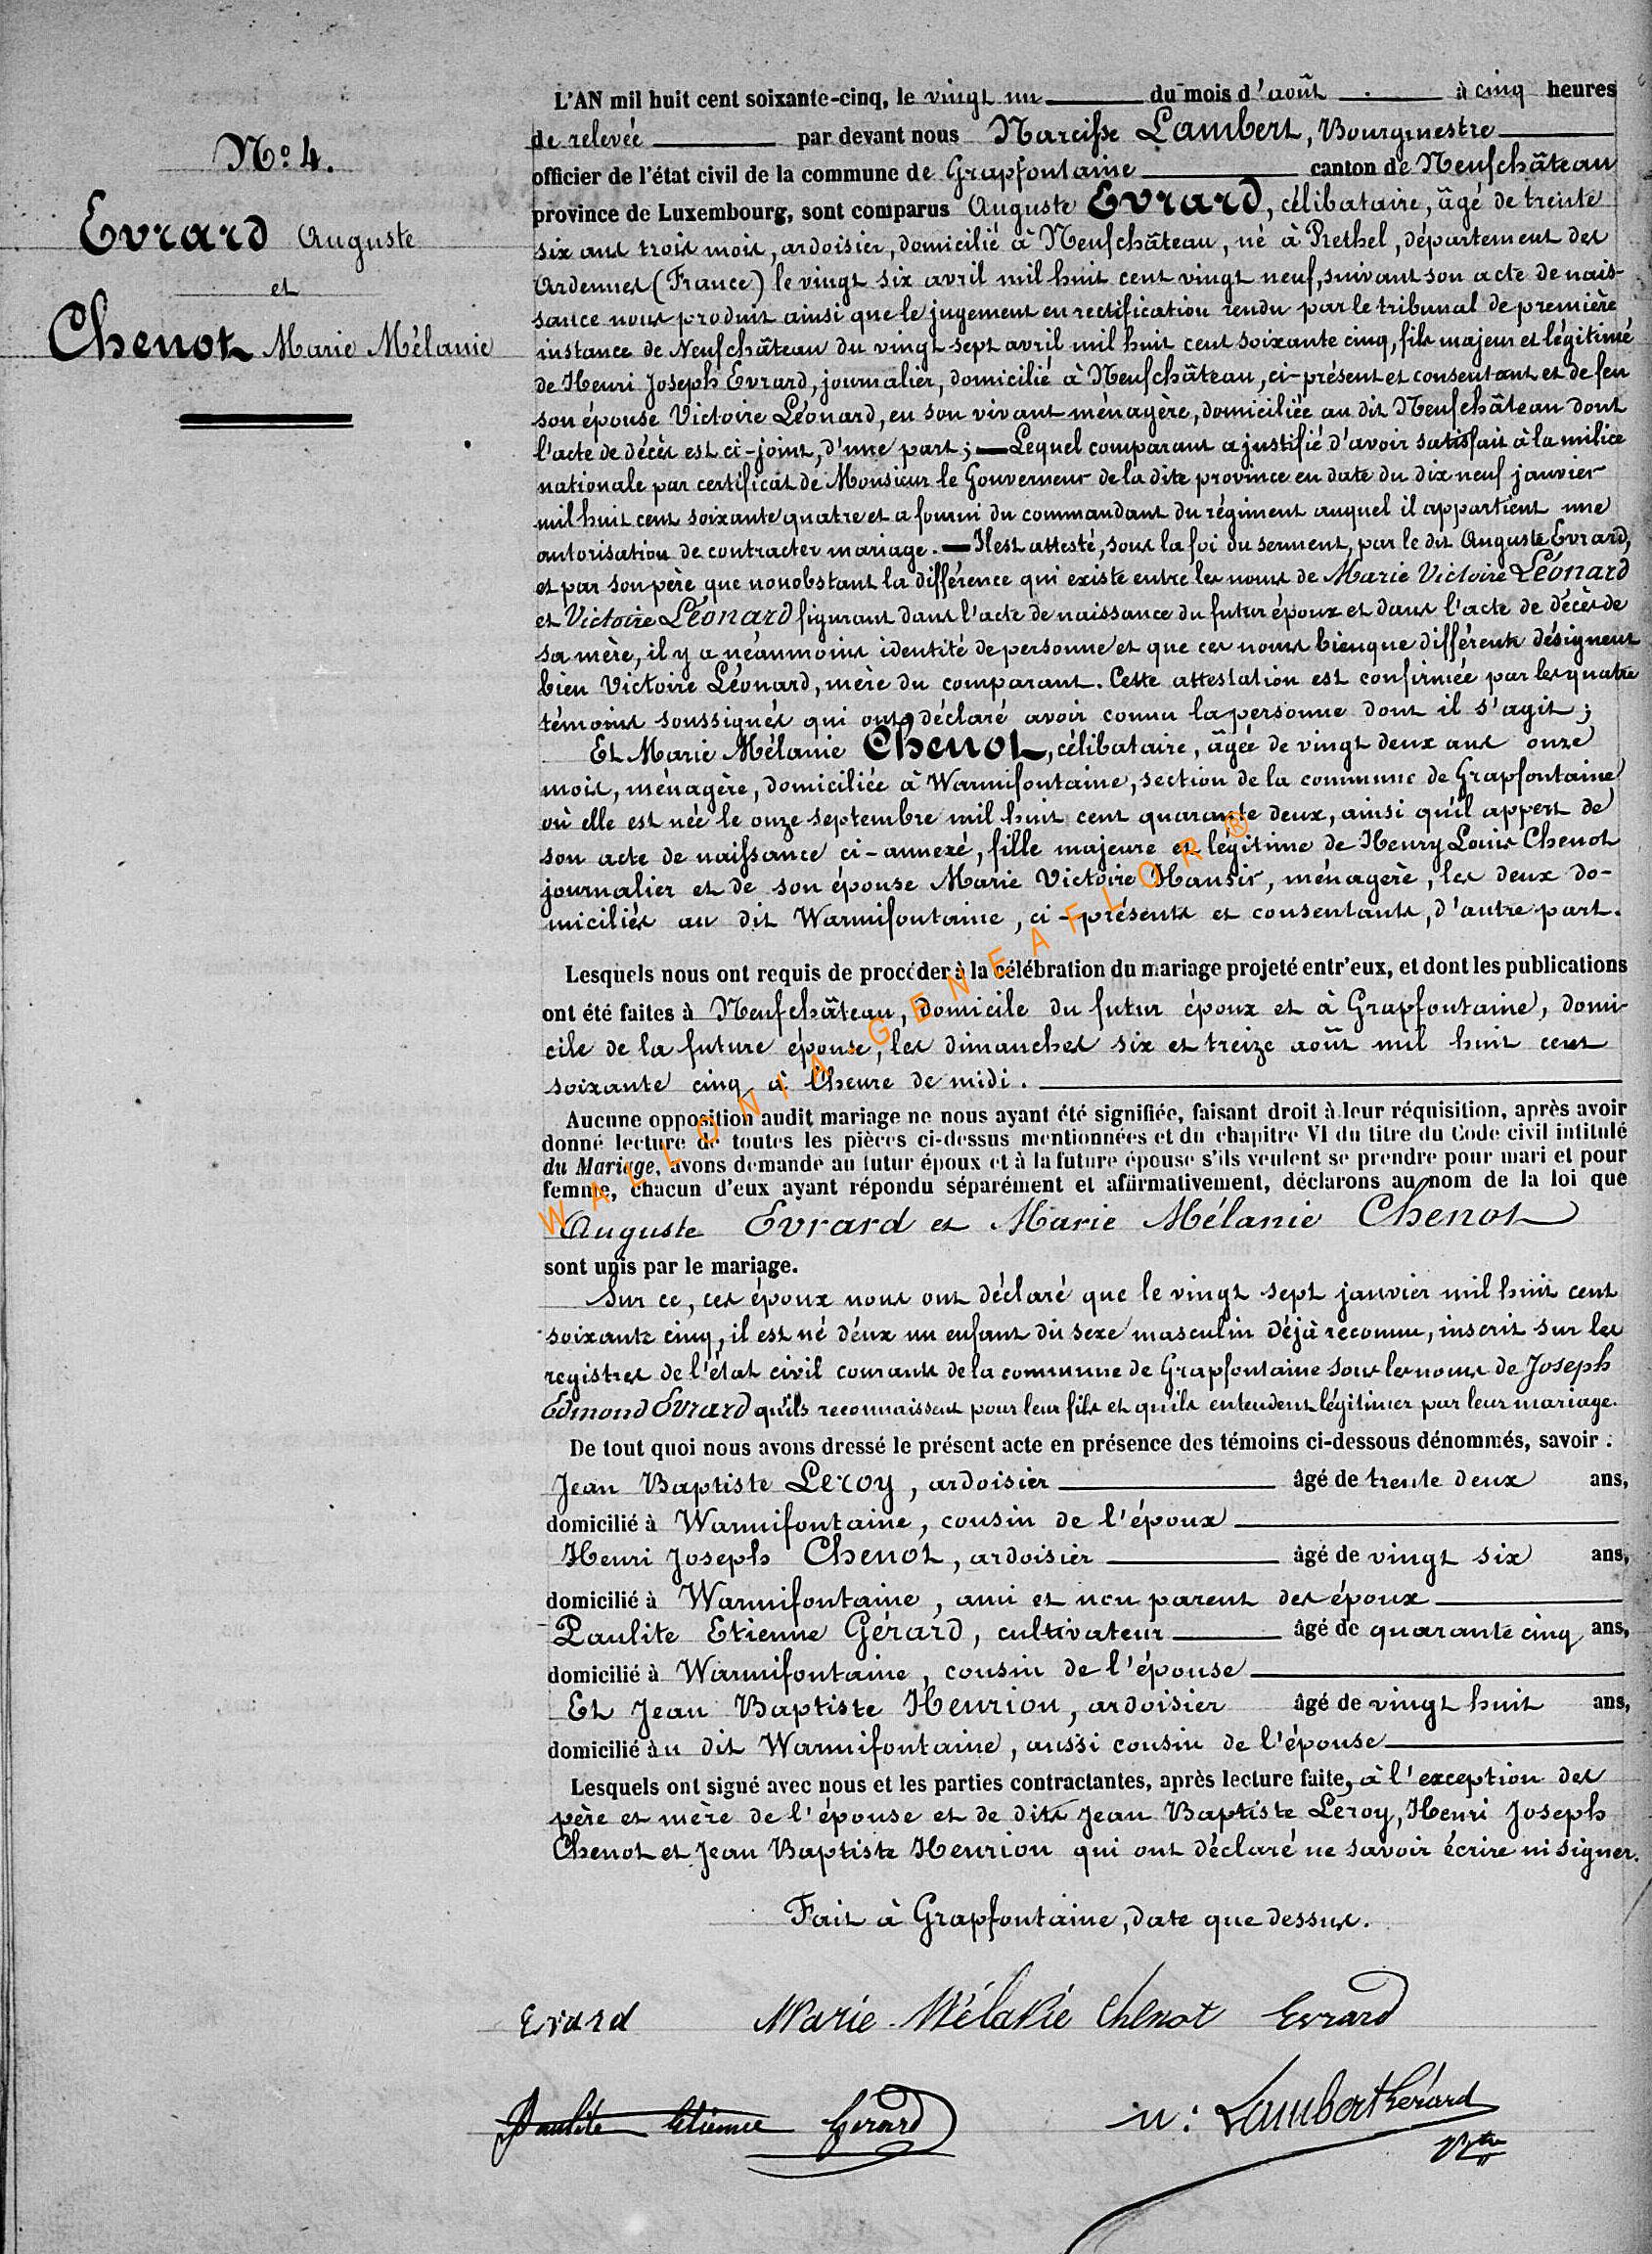 N.º 4.
Evrard Auguste
et
Chenot Marie Mélanie
L'AN mil huit cent soixante-cinq, le vingt un du mois d'août à cinq heures
de relevée par devant nous Narcisse Lambert, Bourgmestre
officier de l'état civil de la commune de Grapfontaine canton de Neufchâteau
province de Luxembourg, sont comparus Auguste Evrard, célibataire, âgé de trente
six ans trois mois, ardoisier, domicilié à Neufchâteau, né à Rethel, département des
Ardennes (France) le vingt six avril mil huit cent vingt neuf, suivant son acte de nais-
sance nous produit ainsi que le jugement en rectification rendu par le tribunal de première
instance de Neufchâteau du vingt sept avril mil huit cent soixante cinq, fils majeur et légitime
de Henri Joseph Evrard, journalier, domicilié à Neufchâteau, ci-présent et consentant et de feu
son épouse Victoire Léonard, en son vivant ménagère, domiciliée au dit Neufchâteau dont
l'acte de décès est ci-joint, d'une part ; — Lequel comparant a justifié d'avoir satisfait à la milice
nationale par certificat de Monsieur le Gouverneur de la dite province en date du dix neuf janvier
mil huit cent soixante quatre et a fourni du commandant du régiment auquel il appartient une
autorisation de contracter mariage. — Il est attesté, sous la foi du serment, par le dit Auguste Evrard,
et par son père que nonobstant la différence qui existe entre les noms de Marie Victoire Léonard
et Victoire Léonard figurant dans l'acte de naissance du futur époux et dans l'acte de décès de
sa mère, il y a néanmoins identité de personne et que ces noms bienque différents désignent
bien Victoire Léonard, mère du comparant. Cette attestation est confirmée par les quatre
témoins soussignés qui ont déclaré avoir connu la personne dont il s'agit ;
Et Marie Mélanie Chenot, célibataire, âgée de vingt deux ans onze
mois, ménagère, domiciliée à Warmifontaine, section de la commune de Grapfontaine
où elle est née le onze septembre mil huit cent quarante deux, ainsi qu'il appert de
son acte de naissance ci-annexé, fille majeure et légitime de Henry Louis Chenot
journalier et de son épouse Marie Victoire Hansir, ménagère, les deux do-
miciliés au dit Warmifontaine, ci-présents et consentants, d'autre part.
Lesquels nous ont requis de procéder à la célébration du mariage projeté entr'eux, et dont les publications
ont été faites à Neufchâteau, domicile du futur époux et à Grapfontaine, domi-
cile de la future épouse, les dimanches six et treize août mil huit cent
soixante cinq à l'heure de midi.
Aucune opposition audit mariage ne nous ayant été signifiée, faisant droit à leur réquisition, après avoir
donné lecture de toutes les pièces ci-dessus mentionnées et du chapitre VI du titre du Code civil intitulé
du Mariage, avons demandé au futur époux et à la future épouse s'ils veulent se prendre pour mari et pour
femme, chacun d'eux ayant répondu séparément et affirmativement, déclarons au nom de la loi que
Auguste Evrard et Marie Mélanie Chenot
sont unis par le mariage.
Sur ce, ces époux nous ont déclaré que le vingt sept janvier mil huit cent
soixante cinq, il est né d'eux un enfant du sexe masculin déjà reconnu, inscrit sur les
registres de l'état civil courants de la commune de Grapfontaine sous les noms de Joseph
Edmond Evrard qu'ils reconnaissent pour leur fils et qu'ils entendent légitimer par leur mariage.
De tout quoi nous avons dressé le présent acte en présence des témoins ci-dessous dénommés, savoir :
Jean Baptiste Leroy, ardoisier âgé de trente deux ans,
domicilié à Warmifontaine, cousin de l'époux
Henri Joseph Chenot, ardoisier âgé de vingt six ans,
domicilié à Warmifontaine, ami et non parent des époux
Paulite Etienne Gérard, cultivateur âgé de quarante cinq ans,
domicilié à Warmifontaine, cousin de l'épouse
Et Jean Baptiste Henrion, ardoisier âgé de vingt huit ans,
domicilié àu dit Warmifontaine, aussi cousin de l'épouse
Lesquels ont signé avec nous et les parties contractantes, après lecture faite, à l'exception des
père et mère de l'épouse et de dits Jean Baptiste Leroy, Henri Joseph
Chenot et Jean Baptiste Henrion qui ont déclaré ne savoir écrire ni signer.
Fait à Grapfontaine, date que dessus.
Evard Marie Mélanie Chenot Evrard
Paulite Etienne Gerard n: Lambert Gérard
WALLONIA-GENEAFLOR®